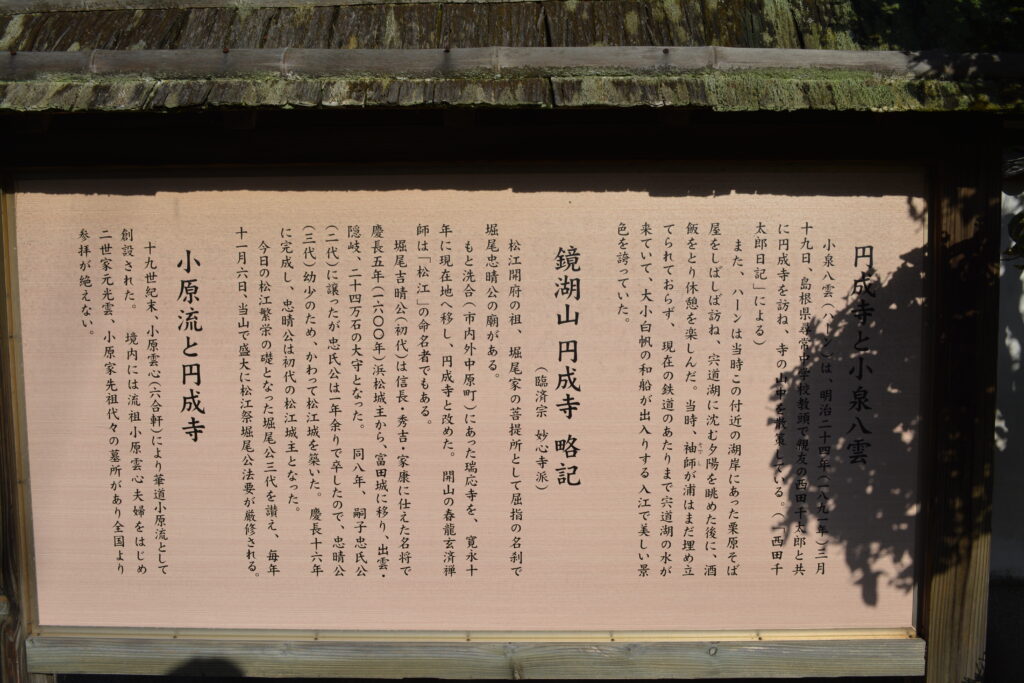 円成寺と小泉八雲
小泉八雲(ハーン)は、明治二十四年(一八九一年)三月
十九日、島根県尋常中学校教頭で親友の西田千太郎と共
に円成寺を訪ね、寺の山中を散策している。(「西田千
太郎日記」による)
また、ハーンは当時この付近の湖岸にあった栗原そば
屋をしばしば訪ね、宍道湖に沈む夕陽を眺めた後に、酒
飯をとり休憩を楽しんだ。当時、袖師が浦はまだ埋め立
てられておらず、現在の鉄道のあたりまで宍道湖の水が
来ていて、大小白帆の和船が出入りする入江で美しい景
色を誇っていた。
鏡湖山 円成寺 略記
(臨済宗 妙心寺派)
松江開府の祖、堀尾家の菩提所として屈指の名刹で
堀尾忠晴公の廟がある。
もと洗合(市内外中原町)にあった瑞応寺を、寛永十
年に現在地へ移し、円成寺と改めた。 開山の春龍玄済禅
師は「松江」の命名者でもある。
堀尾吉晴公(初代)は信長・秀吉・家康に仕えた名将で
慶長五年(一六〇〇年)浜松城主から、富田城に移り、出雲・
隠岐、二十四万石の大守となった。 同八年、嗣子忠氏公
(二代)に譲ったが忠氏公は一年余りで卒したので、忠晴公
(三代)幼少のため、かわって松江城を築いた。慶長十六年
に完成し、忠晴公は初代の松江城主となった。
今日の松江繁栄の礎となった堀尾公三代を讃え、毎年
十一月六日、当山で盛大に松江祭堀尾公法要が厳修される。
小原流と円成寺
十九世紀末、小原雲心(六合軒)により華道小原流として
創設された。 境内には流祖小原雲心夫婦をはじめ
二世家元光雲、小原家先祖代々の墓所があり全国より
参拝が絶えない。